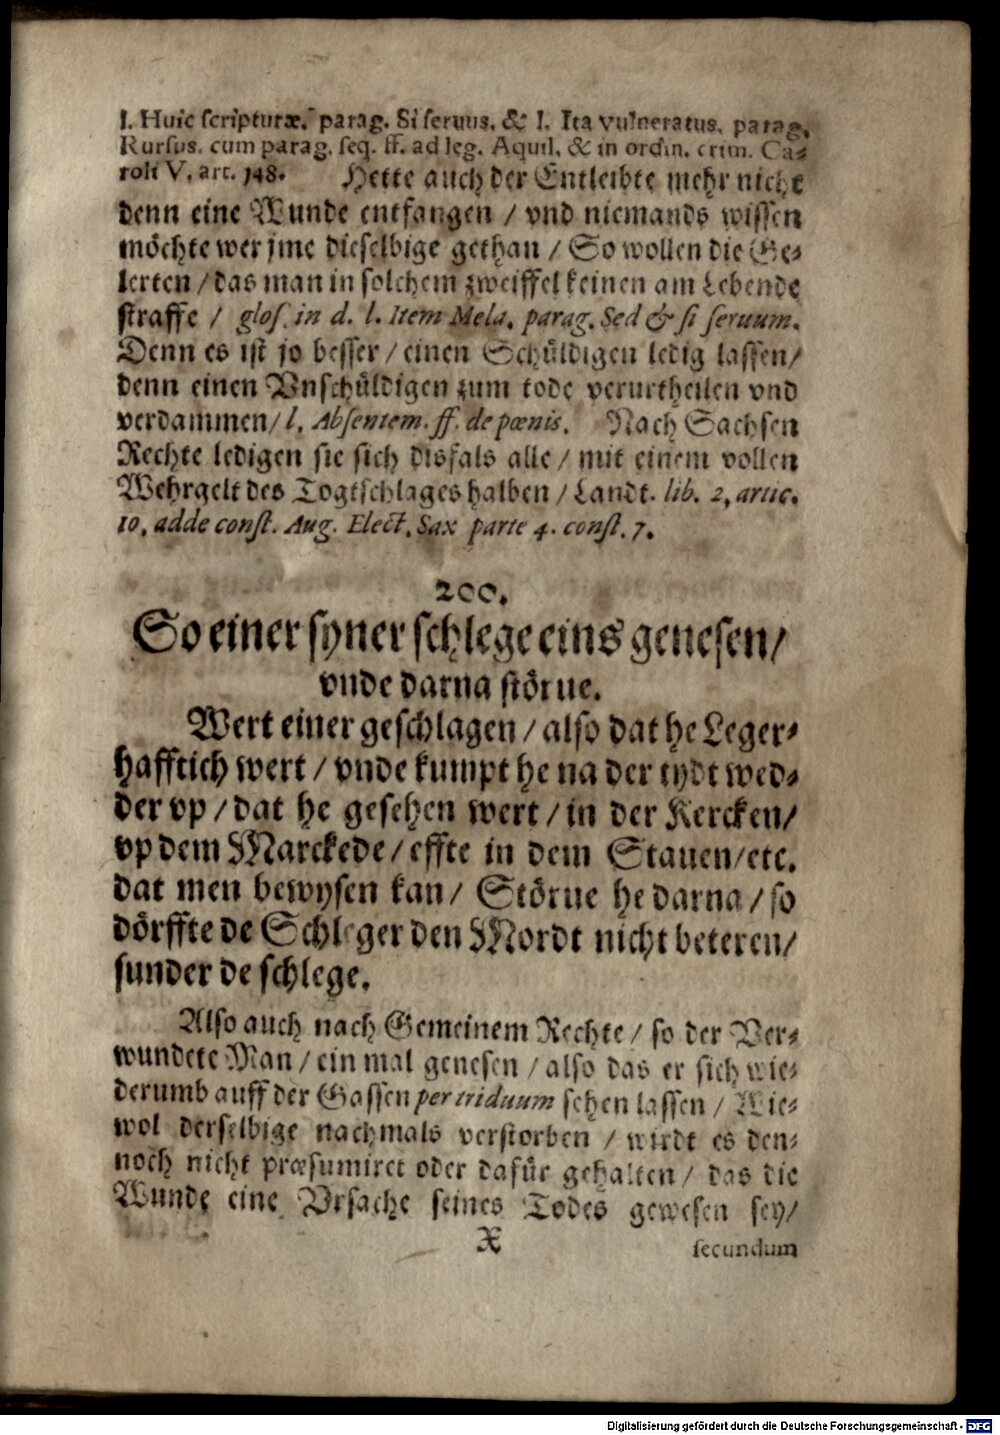 l. Huic scripturæ. parag. Si seruus, & l. Ita vulneratus, parag.
Rursus. cum parag. seq. ff. ad leg. Aquil. & in ordin. crim. Ca-
roli V. art. 148. Hette auch der Entleibte mehr nicht
denn eine Wunde entfangen / vnd niemands wissen
möchte wer jme dieselbige gethan / So wollen die Ge-
lerten / das man in solchem zweiffel keinen am Lebende
straffe / glos. in d. l. Item Mela. parag. Sed & si seruum.
Denn es ist jo besser / einen Schüldigen ledig lassen /
denn einen Vnschüldigen zum tode verurtheilen vnd
verdammen / l. Absentem. ff. de pœnis. Nach Sachsen
Rechte ledigen sie sich disfals alle / mit einem vollen
Wehrgelt des Todtschlages halben / Landt. lib. 2. artic.
10. adde const. Aug. Elect. Sax parte 4. const. 7.
200.
So einer syner schlege eins genesen /
vnde darna störue.
Wert einer geschlagen / also dat he Leger-
hafftich wert / vnde kumpt he na der tydt wed-
der vp / dat he gesehen wert / in der Kercken /
vp dem Marckede / effte in dem Stauen / etc.
dat men bewysen kan / Störue he darna / so
dörffte de Schleger den Mordt nicht beteren /
sunder de schlege.
Also auch nach Gemeinem Rechte / so der Ver-
wundete Man / ein mal genesen / also das er sich wie-
derumb auff der Gassen per triduum sehen lassen / Wie-
wol derselbige nachmals verstorben / wirdt es den-
noch nicht præsumiret oder dafür gehalten / das die
Wunde eine Vrsache seines Todes gewesen sey /
X secundum
Digitalisierung gefördert durch die Deutsche Forschungsgemeinschaft - DFG